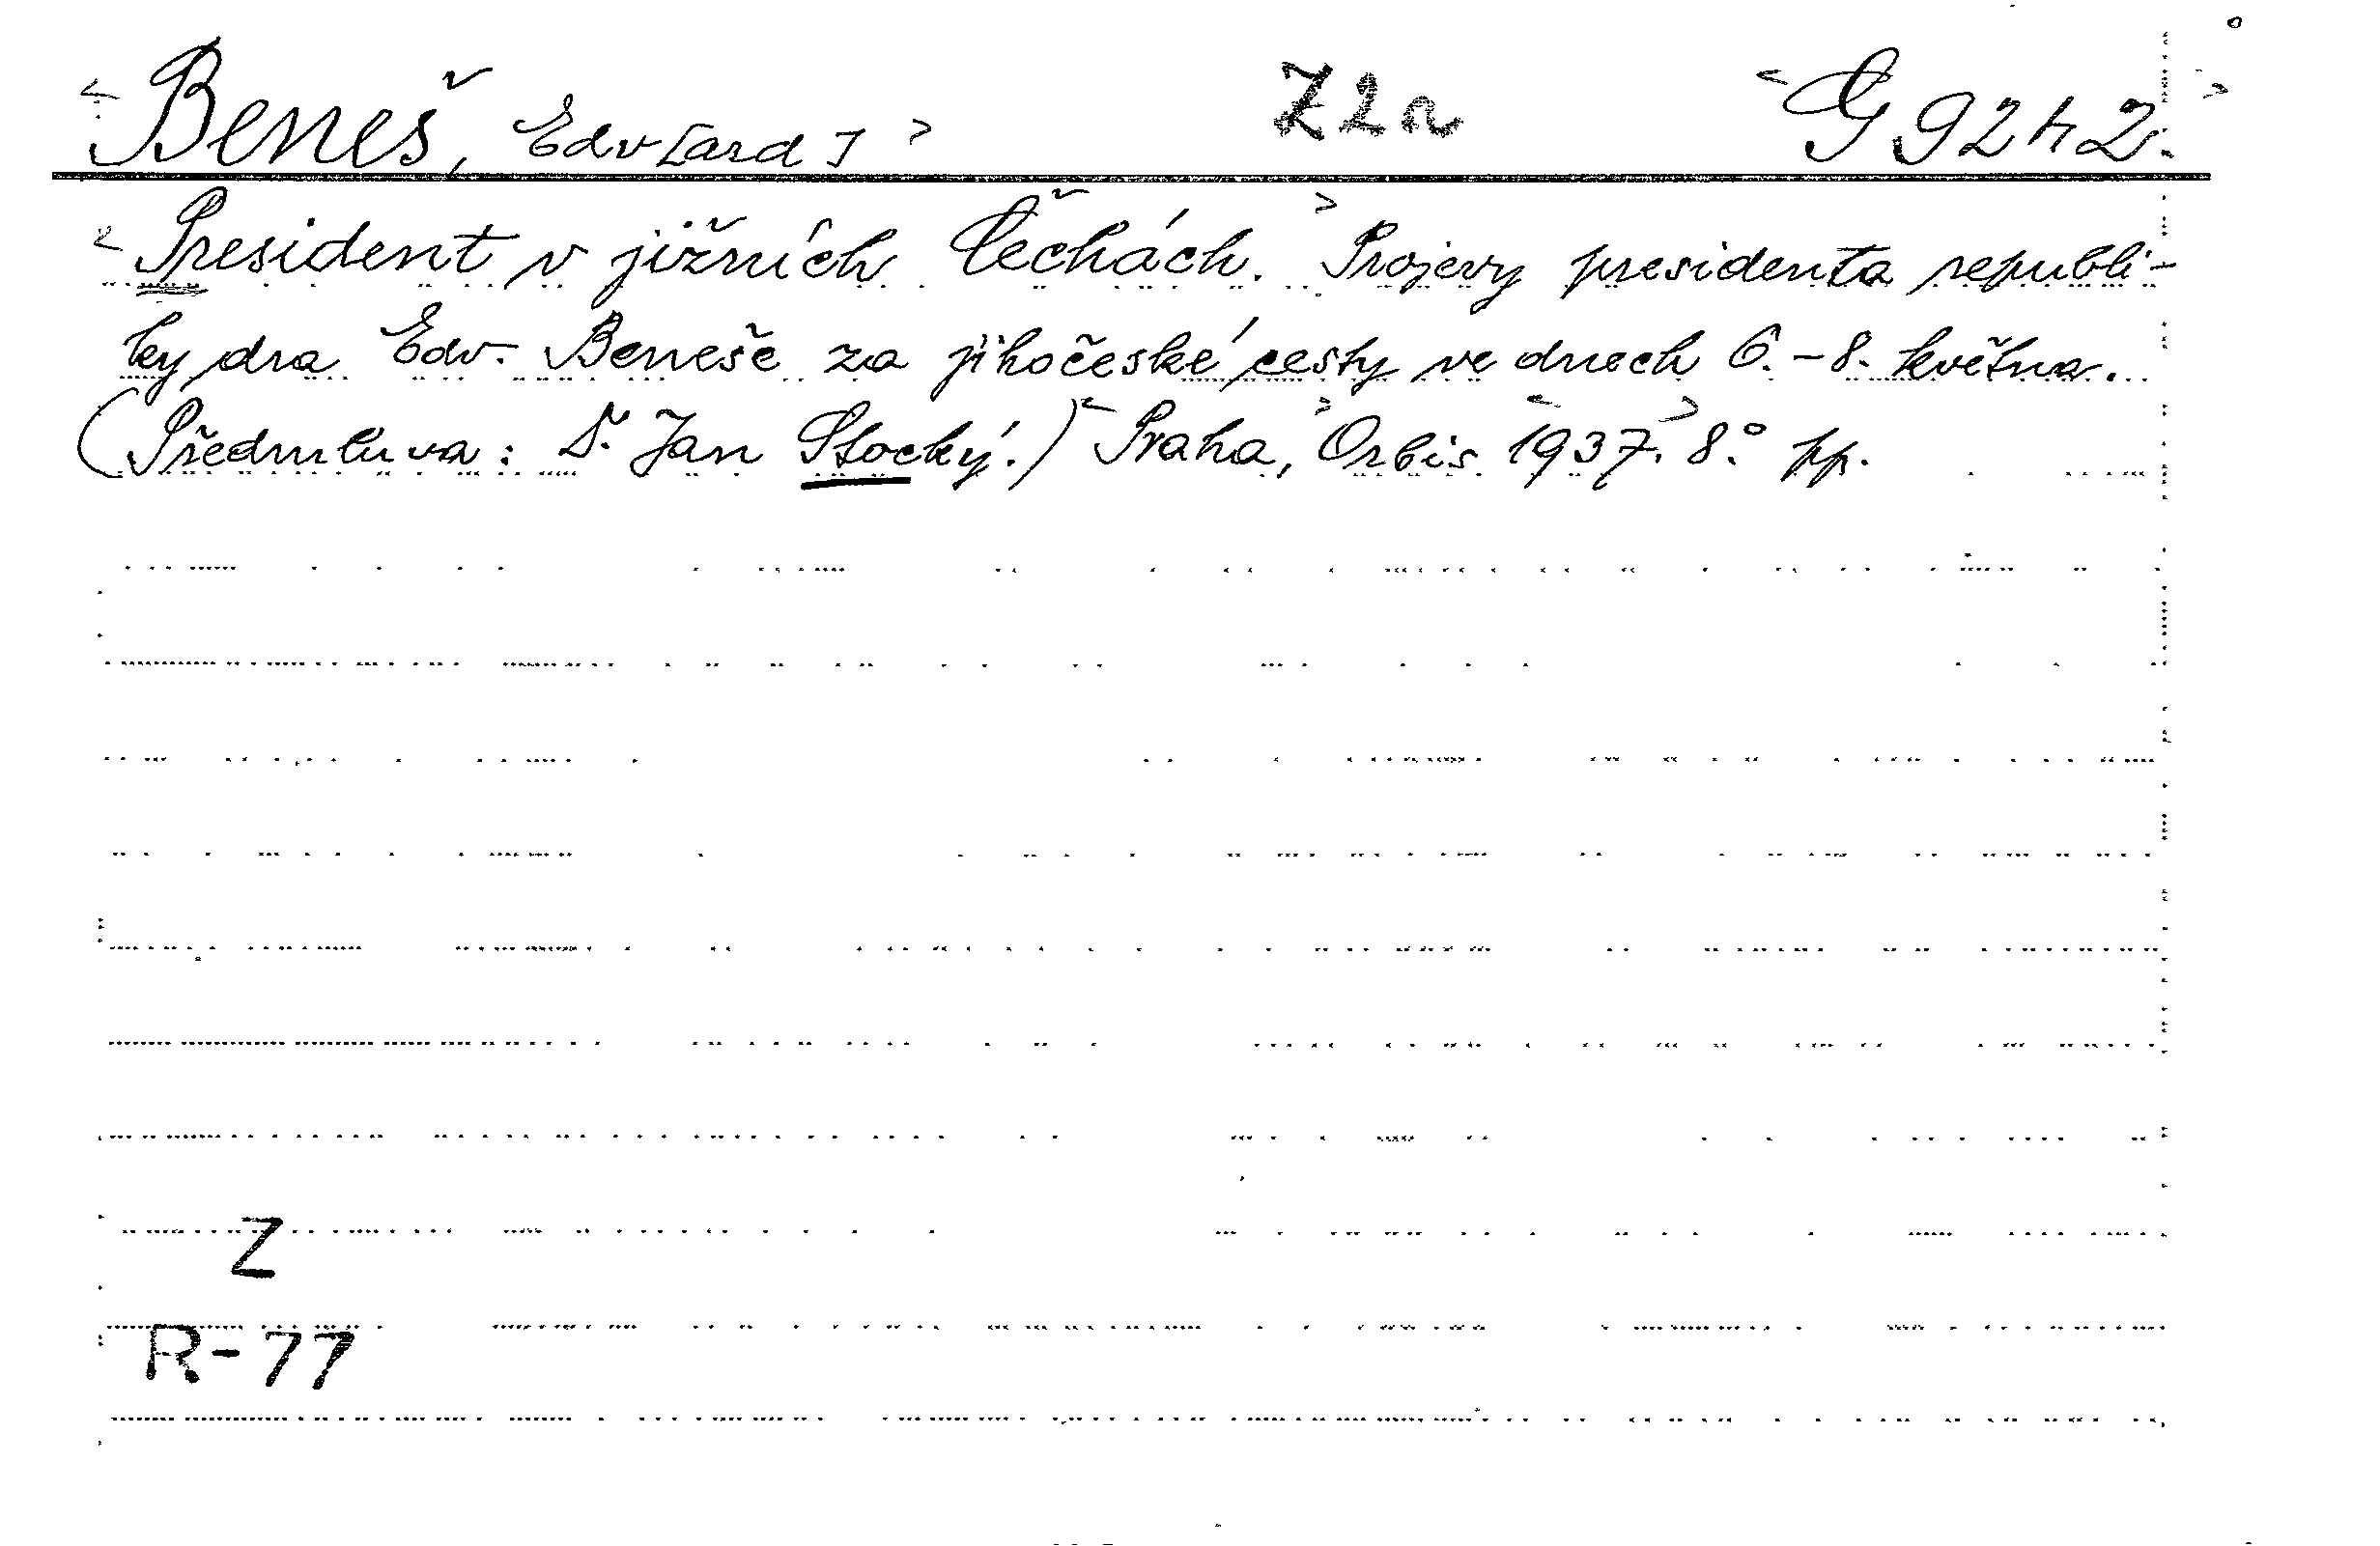 <Beneš, Edv[ard]> Z2a <G 9242.>
<President v jižních Čechách.> Projevy presidenta republi-
ky dra Edv. Beneše za jihočeské cesty ve dnech 6.-8. května.
(Předmluva: Dr. Jan Stocký.) <Praha,> Orbis <1937.> 8.° pp.
Z
R-77